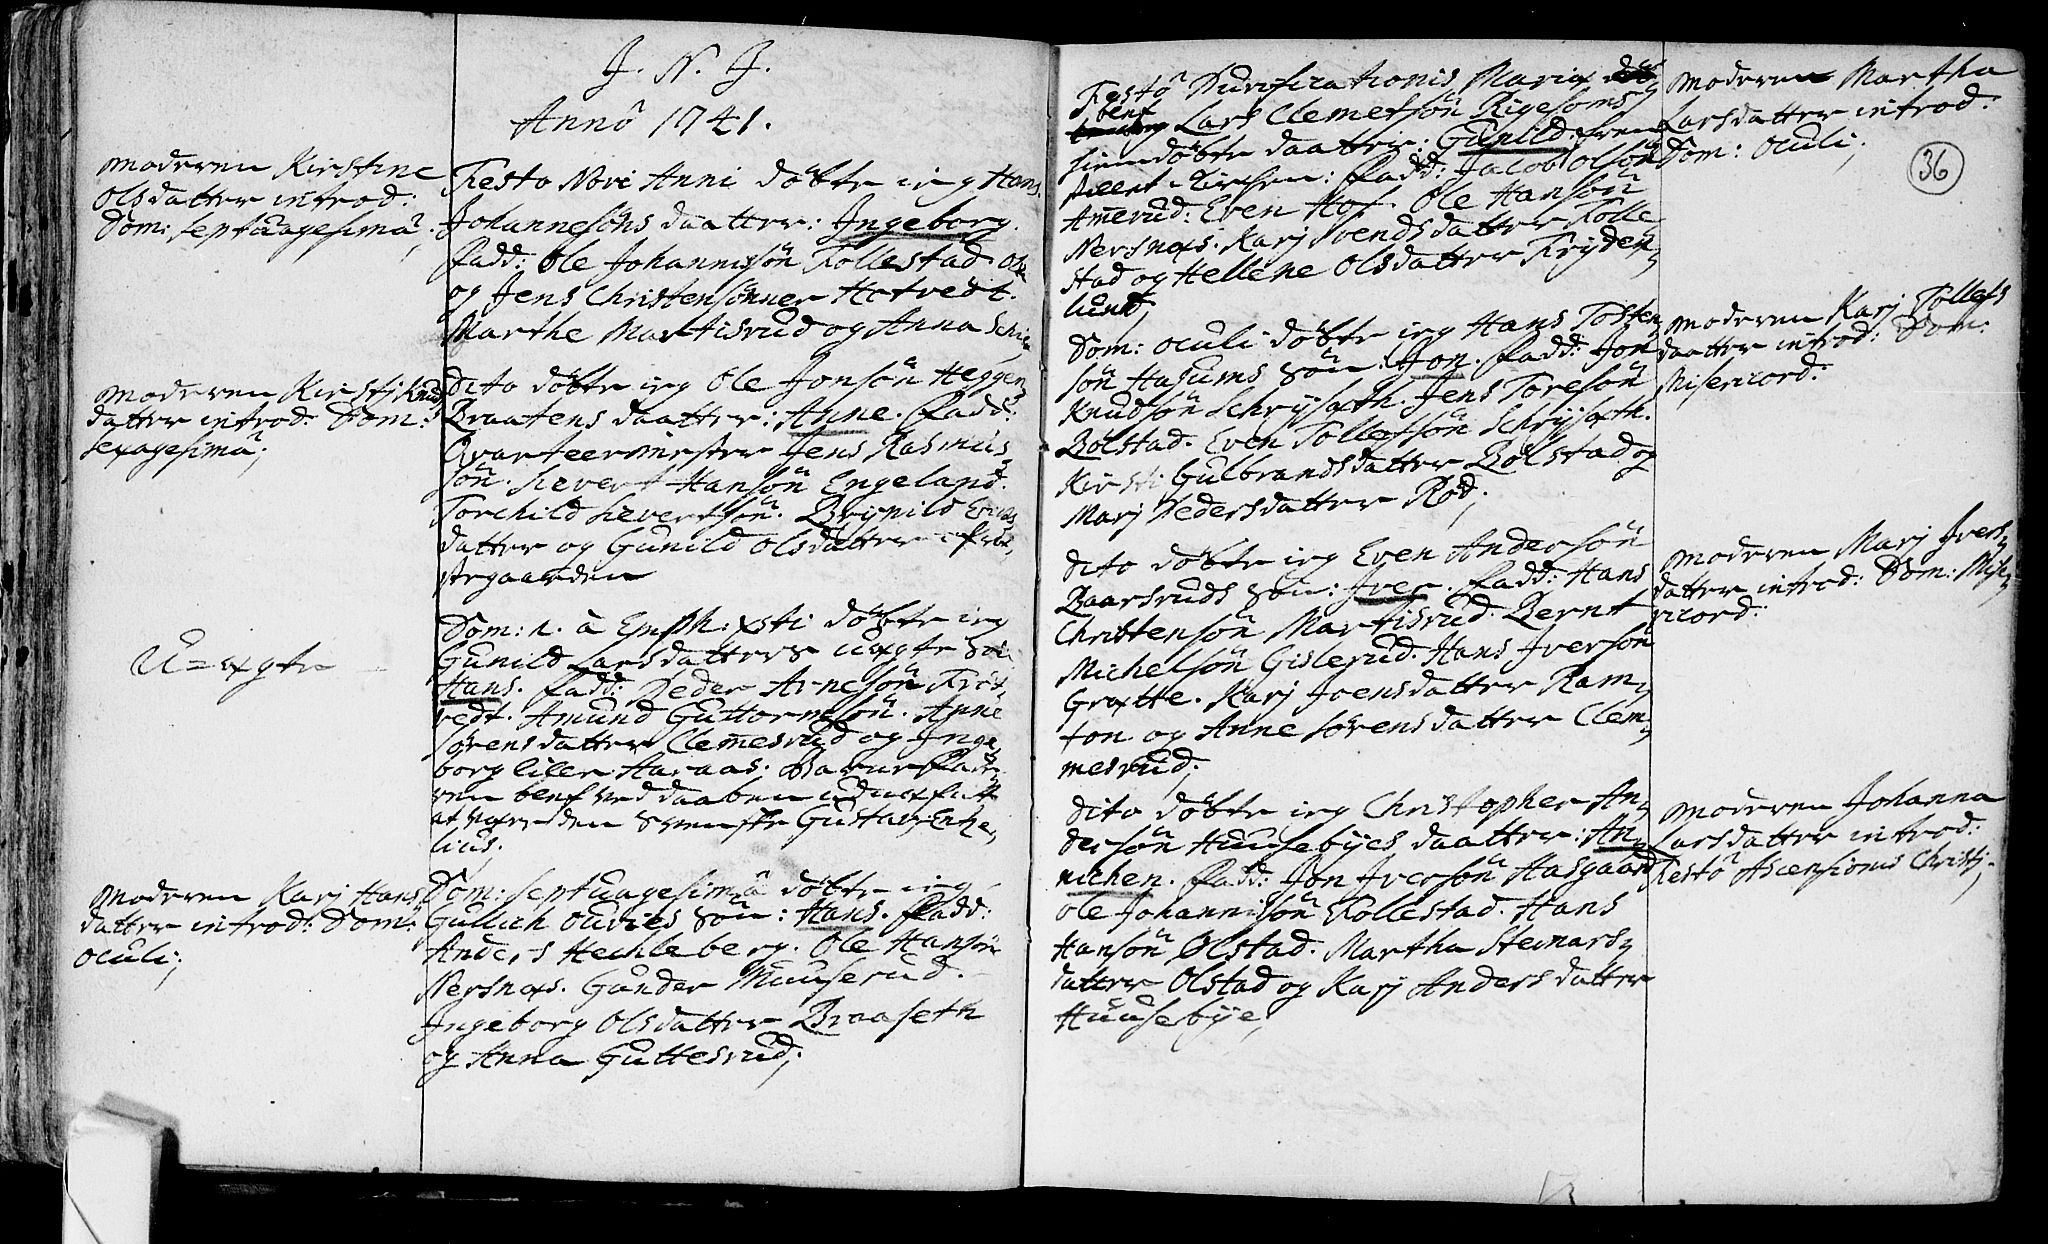 J. N. J.
Annô 1741.
Moderen Kirstine
Olsdatter introd:
Dom: Septuagesima,
Festo Novi Anni döbte ieg Hans
Johannesöns daatter: Ingeborg.
Fadd: Ole Johannisön Follestad Ole
og Jens Christensönner Hotvedt.
Marthe Martisrud og Anna
Moderen Kirstj Knuds
datter introd: Dom:
Sexagesima;
Dito döbte ieg Ole Jonsön Heggen
Braatens daatter: Anne. Fadd:
Qvarteermester Jens Rasmus
sön. Sievert Hansön Engeland.
Torchild Sievertsön. Brynild
datter og Gunild Olsdatter i Præ
stegaarden
U=ægte
Dom: 1. à Epiph: Xsti döbte ieg
Gunild Larsdatters uægte Sön
Hans. Fadd: Peder Arnesön
vedt. Amund Guttormsön. Anne
Sörensdatter Clemmesrud og Inge
borg Lille Haraas. Barnefade
ren blef ved daaben udnæfnt
at være den Svenske Gustav
lius;
Moderen Karj Hans
datter introd: Dom:
Oculi;
Dom: Septuagesima döbte ieg
Gullich Oudies Sön: Hans. Fadd:
Anders Hechleberg. Ole Hansön
Nersnæs. Gunder Muuserud.
Ingeborg Olsdatter Braaseth
og Anna Guttesrud;
36
Festô Purificationis Mariæ
blef Lars Clemetsön Rigesoms
hiemdöbte daatter: Gunild frem
stillet i Kirken: Fadd: Jacob Olsön
Amerud: Even Hof. Ole Hansön
Nersnæs. Karj Svendsdatter Folle
stad og Hellene Olsdatter Fryden
lund;
Moderen Martha
Larsdatter introd:
Dom: Oculi;
Dom: Oculi döbte ieg Hans Tosten
sön Hasums Sön: Jon. Fadd: Jon
Knudsön Schrysæth. Jens Toresön
Bölstad. Even Tollefsön Schrysæth.
Kirsti Gulbrandsdatter Bölstad og
Marj Pedersdatter Röd;
Moderen Karj Tollefs
daatter introd: Dom:
Misericord:
Dito döbte ieg Even Andersön
Baarsruds Sön: Iver. Fadd: Hans
Christensön Martisrud. Bernt
Michelsön Gislerud. Hans Iversön
Grætte. Karj Joensdatter Ram
ton og Anne Sörensdatter Clem
mesrud;
Moderen Marj Ivers
datter introd: Dom: Mise
ricord:
Dito döbte ieg Christopher An
dersön Huusebyes daatter: An
nichen. Fadd: Jon Iversön Hasgaard
Ole Johannisön Follestad. Hans
Hansön Olstad. Martha Steinars
datter Olstad og Karj Andersdatter
Huusebye;
Moderen Johanna
Larsdatter introd:
Festô Ascensionis Christi;